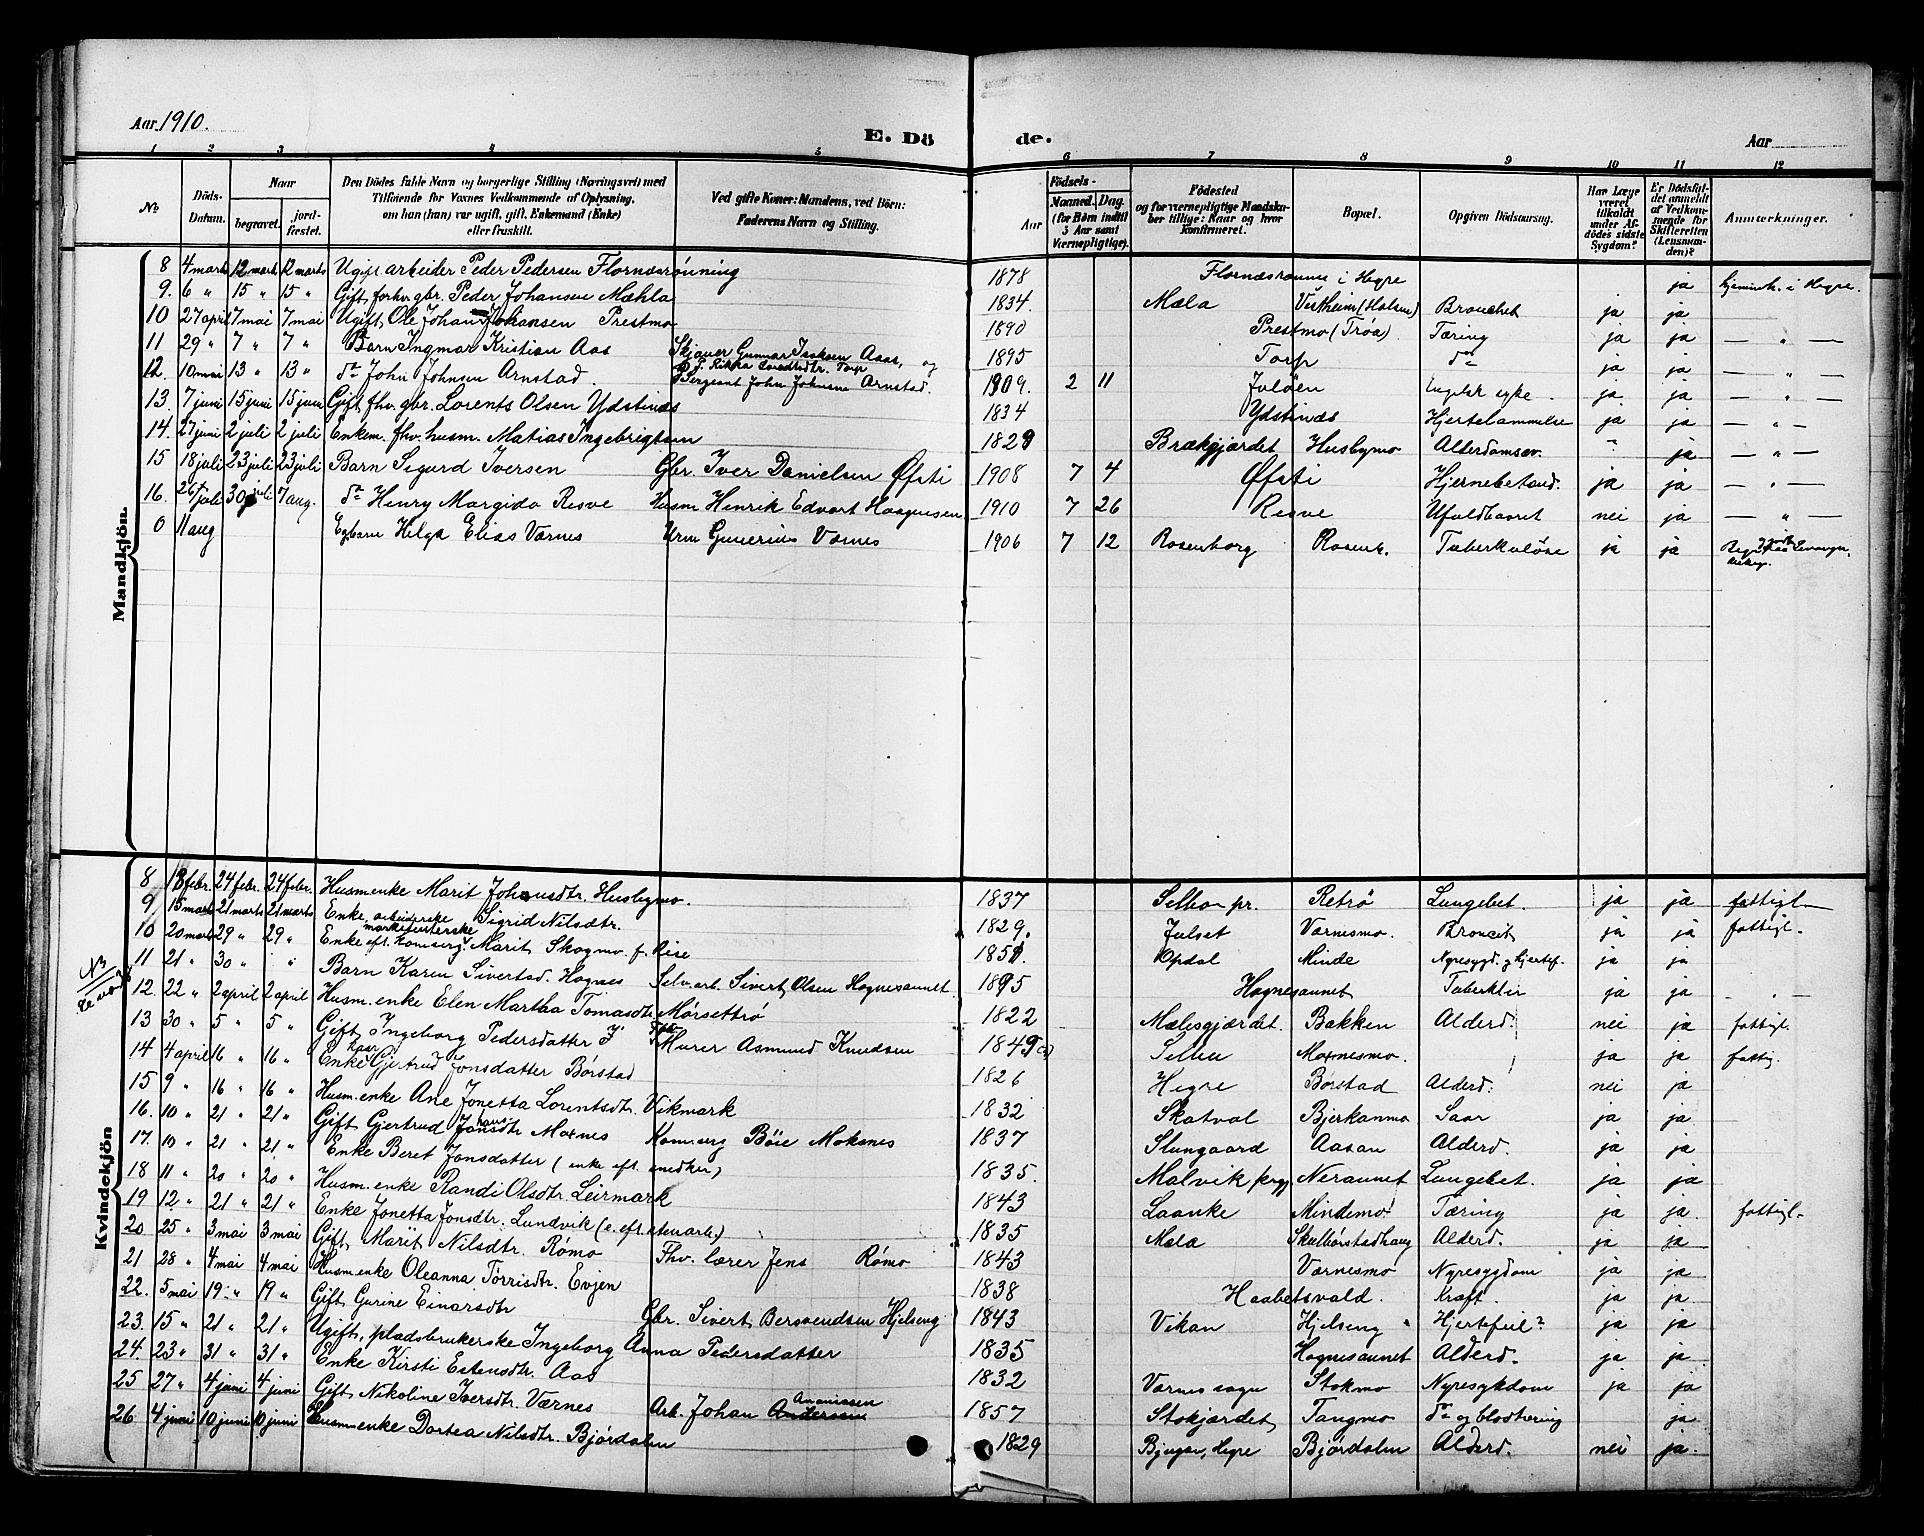 Aar 1910.
E. Dö de.
Aar
1 2 3 4 5 6 7 8 9 10 11 12
No
Döds-Datum.
Naar
begravet. jord-fæstet.
Den Dödes fulde Navn og borgerlige Stilling (Næringsvei) med Tilføiende for Voxnes Vedkommende af Oplysning, om han (hun) var ugift, gift, Enkemand (Enke) eller fraskilt.
Ved gifte Koner: Mandens, ved Börn: Faderens Navn og Stilling.
Födsels-
Aar Maaned. Dag. (for Børn indtil 5 Aar samt Værnepligtige).
Födested og for værnepligtige Mandskaber tillige: Naar og hvor konfirmeret.
Bopæl.
Opgiven Dödsaarsag.
Har Læge været tilkaldt under Afdödes sidste Sygdom?
Er Dödsfaldet anmeldt af Vedkommende for Skifteretten (Lensmanden)?
Anmærkninger.
Mandkjön.
8 4 marts 12 marts 12 marts Ugift arbeider Peder Pedersen Flornæsrönning 1878 Flornæsrønn i Hegre ja i Hegre.
9. 6 " 15 " 15 " Gift forhv. gbr. Peder Johansen Mæhla 1834. Mæla Vertheim (Halsen) Bronchet ja ja
10 27 april 7 mai 7 mai Ugift Ole Johan Johansen Prestmo 1890 Prestmo (Trøa) Tæring ja ja — " —
11 29 " 7 " 7 " Barn Ingmar Kristian Aas Skjøner Gunnar Isaksen Aaas, og 1895 Torp do ja ja — " —
12. 10 mai 13 " 13 " do John Johnsen Arnstad. Sergeant John Johnsen Arnstad. 1909. 2 11 Juløen Engelsk syke. ja ja — " —
13. 7 juni 15 juni 15 juni Gift fhv. gbr. Lorents Olsen Ydstinæs 1834 Ydstinæs Hjertelammelse ja ja — " —
14. 27 juni 2 juli 2 juli Enkem. fhv. husm. Matias Ingebrigtsen 1829 Brækgjærdet Husbymo Alderdomssv. " ja — " —
15 18 juli 23 juli 23 juli Barn Sigurd Iversen Gbr. Iver Danielsen Øfsti 1908 7 4 Øfsti Hjernebetænd. ja ja — " —
16. 26 juli 30 juli 7 aug. do Henry Margido Resve Husm Henrik Edvart Haagensen 1910 7 26 Resve Ufuldbaaret nei ja — " —
0 11 aug Egbarn Helge Elias Værnes Urm Gunerius Værnes 1906 7 12 Rosenborg Rosenb. Tuberkuløse ja ja
Kvindekjön
8 18 febr. 24 febr. 24 febr. Husm.enke Marit Johnsdtr. Husbymo. 1837 Selbo pr. Retrø Lungebet. ja ja fattigl.
9 15 marts 21 marts 21 marts Enke, arbeiderske Sigrid Nilsdtr. 1829. Julset Værnesmo. Broncit ja ja fattigl.
10 20 marts 29 " 29 " Enke eft. kom.serg. Marit Skogmo f. Rise 1851. Opdal Minde Nyresygd. og hjertef. ja ja
11 21 " 30 " " Barn Karen Sivertsd. Hognes Selv.arb. Sivert Olsen Hognesaunet. 1895 Hognesaunet Tuberkler ja ja — " —
12. 22 " 2 april 2 april Husm.enke Elen Martha Tomasdtr. Mørsettrø 1822 Mælesgjærdet. Bakken Alderd. nei ja fattigl.
13 30 " 5 " 5 " Gift Ingeborg Pedersdatter Murer Asmund Knudsen 1849 Selbu Moxnesmo. ja ja fattig.
14 4 april 16 " 16 " Enke Gjertrud Jonsdatter Børstad 1826 Hegre Børstad Alderd. nei ja
15 9 " 16 " 16 " Husm.enke Ane Jonetta Lorentsdtr. Vikmark 1832 Skatval Bjerkanmo Saar ja ja
16. 10 " 21 " 21 " Gift Gjertrud Jonsdtr Moxnes Kom.serg Bøie Moksnes 1837 Slungaard Aasan Alderd. ja ja
17. 10 " 21 " 21 " Enke Beret Jonsdatter (enke eft. snedker) 1835. Malvik prgj. Neraunet Lungebet. ja ja
18 11 " 20 " 20 " Husm.enke Randi Olsdtr. Leirmark 1843 Laanke Mindemo Tæring ja ja. fattigl.
19 12 " 21 " 21 " Enke Jonetta Jonsdtr. Lundvik (e. eft. stenarb.) 1835 Mæla Skulbørstadhaug Alderd. ja ja
20 25 " 3 mai 3 mai Gift Marit Nilsdtr. Rømo Fhv. lærer Jens Rømo 1843 Værnesmo Nyresygdom ja ja
21 28 " 4 mai 4 mai Husm.enke Oleanna Torrisdtr. Evjen 1838 Haabetsvald. Kræft. ja ja.
22. 5 mai 19 " 19 " Gift Gurine Einarsdtr Gbr. Sivert Bersvendsen Hjelseng 1843 Vikan Hjelseng Hjertefeil? ja ja
23. 15 " 21 " 21 " Ugift, pladsbrukerske Ingeborg Anna Pedersdatter 1835 Hognesaunet Alderd. ja ja
24. 23 " 31 " 31 " Enke Kirsti Estensdtr. Aas 1832 Værnes sogn Stokmo Nyresykdom ja ja
25 27 " 4 juni 4 juni Gift Nikoline Iversdtr. Værnes Arb. Johan Andersen Ananissen 1857 Stokjærdet Tangmo do og blodstyring ja
26. 4 juni 10 juni 10 juni Husm.enke Dortea Nilsdtr. Bjørdalen 1829 Hegre Bjørdalen Alderd. nei ja.